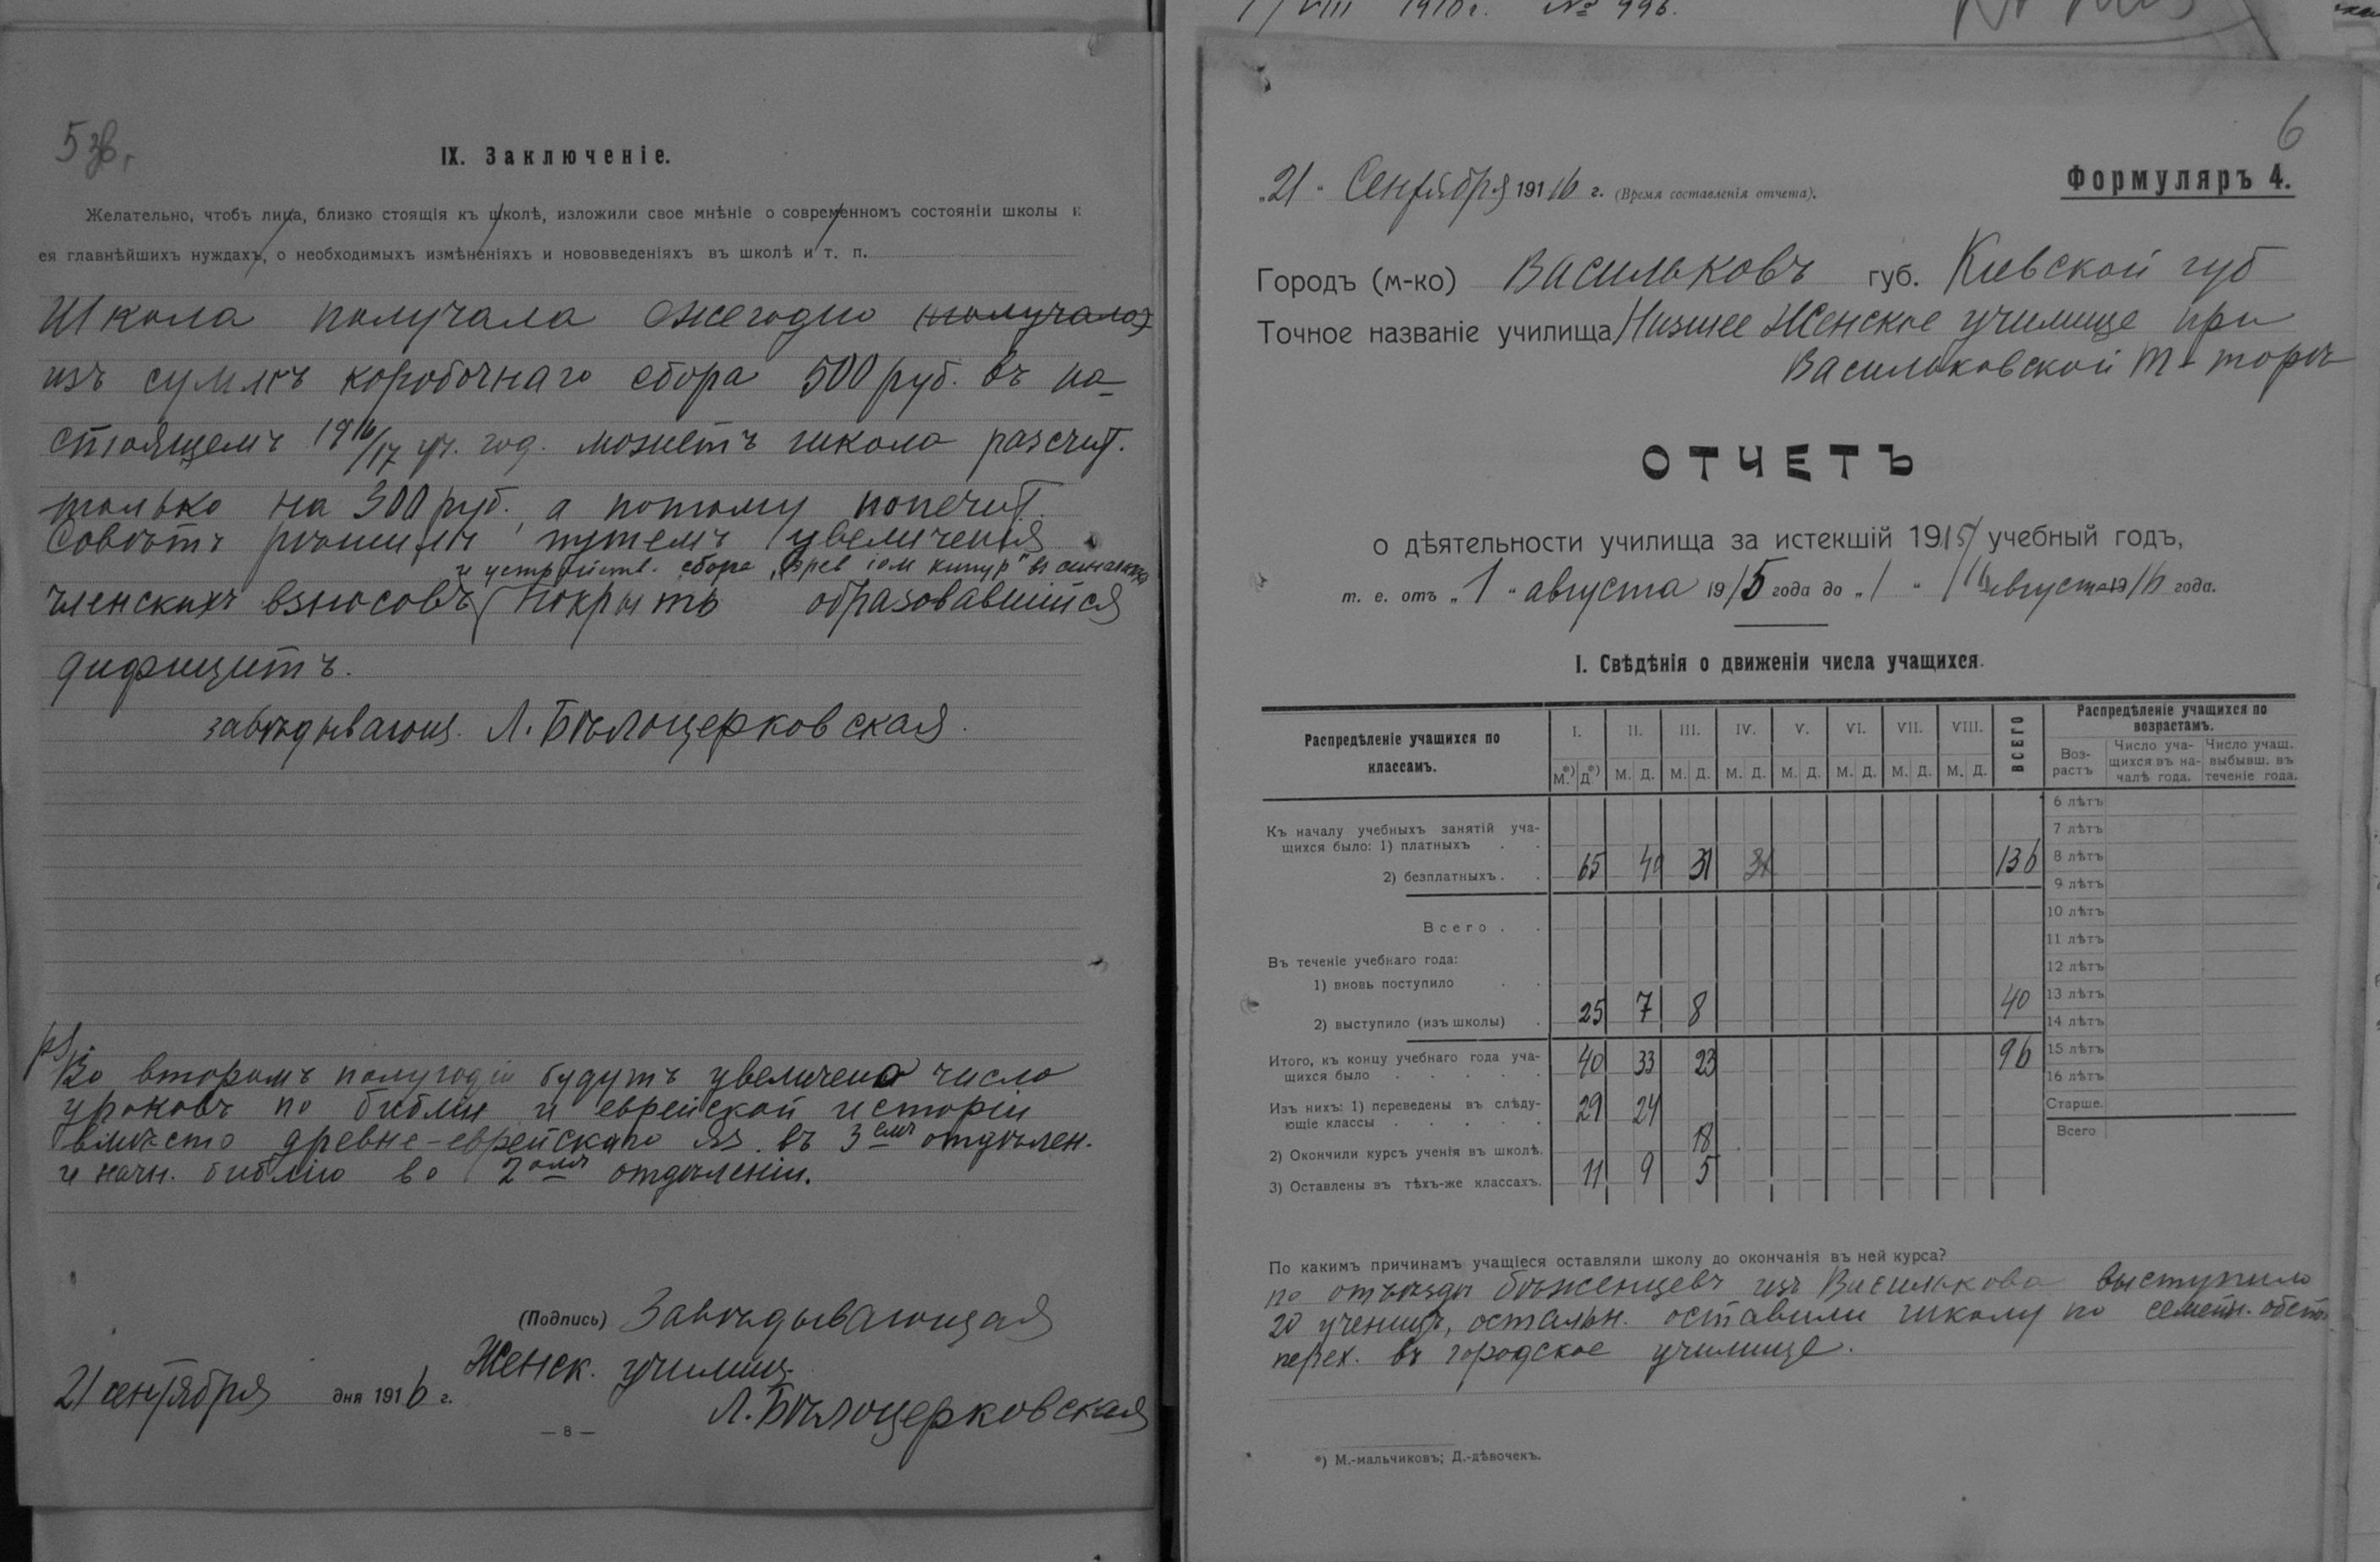 5 зв.
IX. Заключеніе.
Желательно, чтобъ лица, близко стоящія къ школѣ, изложили свое мнѣніе о современномъ состояніи школы и
ея главнѣйшихъ нуждахъ, о необходимыхъ измѣненіяхъ и нововведеніяхъ въ школѣ и т. п.
Школа получала ежегодно (получало)
изъ суммъ коробочнаго сбора 500 руб. въ на-
стоящемъ 1916/17 уч. год. можетъ школа разсчит.
только на 300 руб., а потому попечит.
Совѣтъ рѣшилъ путемъ увеличенія
и устройств. сбора „Эрев іом кипур" въ синагогах
членскихъ взносовъ покрыть образовавшийся
дифицитъ.
завѣдывающ. Л. Бѣлоцерковская.
ps
Во второмъ полугодіи будутъ увеличено число
уроковъ по библіи и еврейской исторіи
вмѣсто древне-еврейскаго яз. въ 3емъ отдѣлен.
и начн. библію во 2омъ отдѣленіи.
(Подпись) Завѣдывающая
Женск. училищ.
21 сентября дня 1916 г.
Л. Бѣлоцерковская
— 8 —
1910 г. № 996.
6
„21" Сентября 1916 г. (Время составленія отчета).
Формуляръ 4.
Городъ (м-ко) Васильковъ губ. Кіевской губ
Точное названіе училища Низшее Женское училище при
Васильковской Т-торѣ
ОТЧЕТЪ
о дѣятельности училища за истекшій 1915/16 учебный годъ,
т. е. отъ „1" августа 1915 года до „1" августа 1916 года.
I. Свѣдѣнія о движеніи числа учащихся.
Распредѣленіе учащихся по классамъ. I. II. III. IV. V. VI. VII. VIII. ВСЕГО Распредѣленіе учащихся по возрастамъ.
М.*) Д.*) М. Д. М. Д. М. Д. М. Д. М. Д. М. Д. М. Д. Возрастъ Число учащихся въ началѣ года. Число учащ. выбывш. въ теченіе года.
6 лѣтъ
Къ началу учебныхъ занятій уча-
7 лѣтъ
щихся было: 1) платныхъ . .
8 лѣтъ
2) безплатныхъ . . 65 40 31 31 136
9 лѣтъ
10 лѣтъ
Всего . .
11 лѣтъ
Въ теченіе учебнаго года:
12 лѣтъ
1) вновь поступило . .
13 лѣтъ
2) выступило (изъ школы) . 25 7 8 40
14 лѣтъ
Итого, къ концу учебнаго года уча-
щихся было . . . . . 40 33 23 96
15 лѣтъ
16 лѣтъ
Изъ нихъ: 1) переведены въ слѣду-
ющіе классы . . . . . 29 24
Старше.
Всего
2) Окончили курсъ ученія въ школѣ. 18
3) Оставлены въ тѣхъ-же классахъ. 11 9 5
По какимъ причинамъ учащіеся оставляли школу до окончанія въ ней курса?
по отъѣзду бѣженцевъ изъ Василькова выступило
20 ученицъ, остальн. оставили школу по семейн. обст.
перех. въ городское училище.
*) М.-мальчиковъ; Д.-дѣвочекъ.